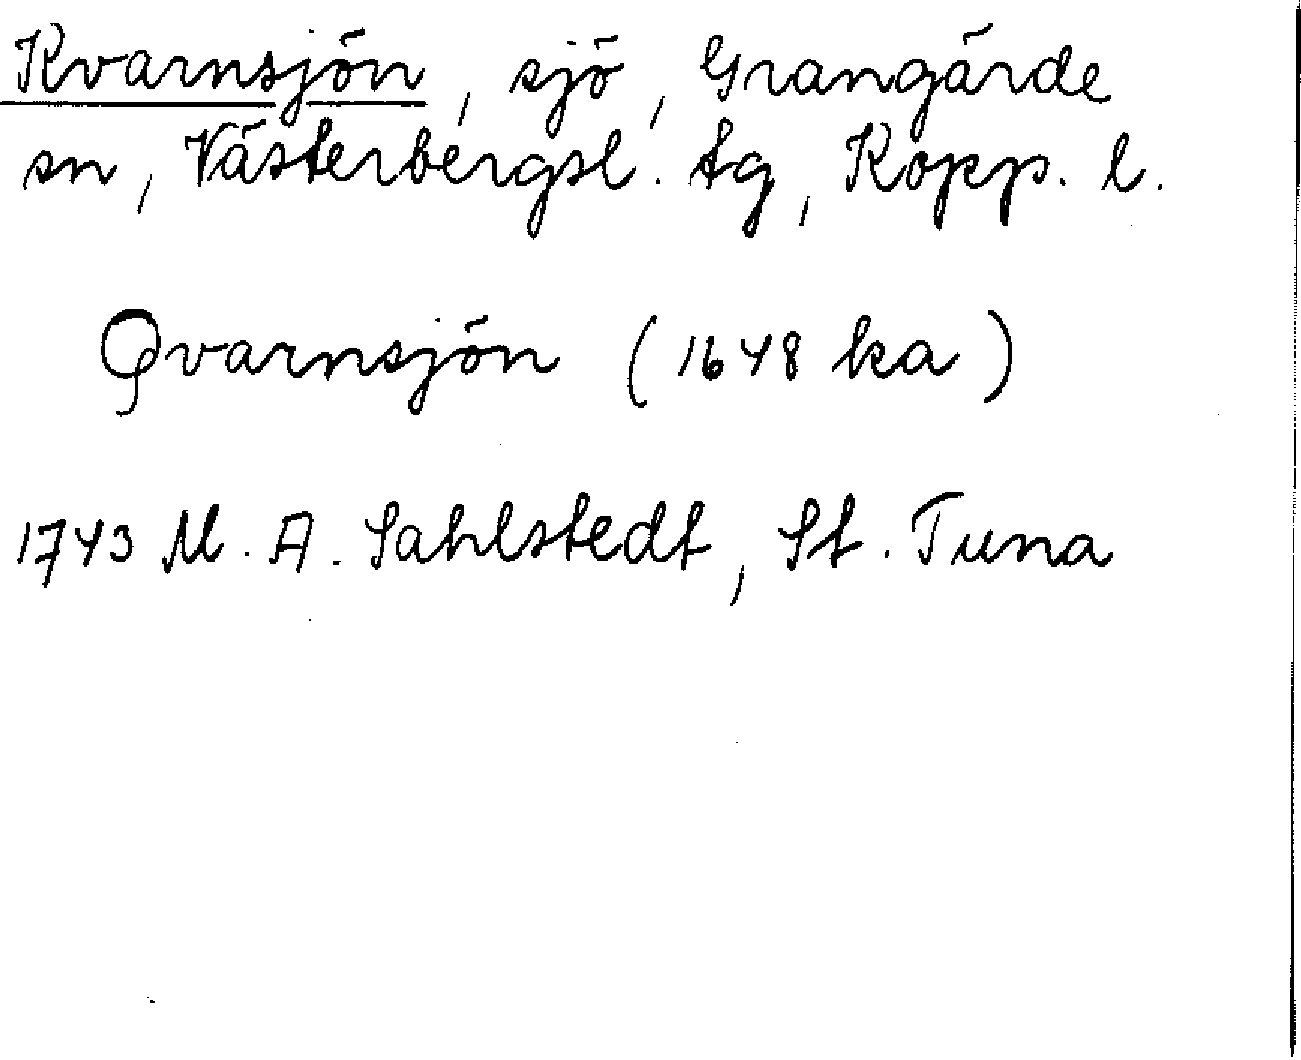 Kvarnsjön, sjö, Grangärde
sn, Västerbergsl. tg, Kopp. l.
Qvarnsjön (1648 ka)
1743 M. A. Sahlstedt, St. Tuna